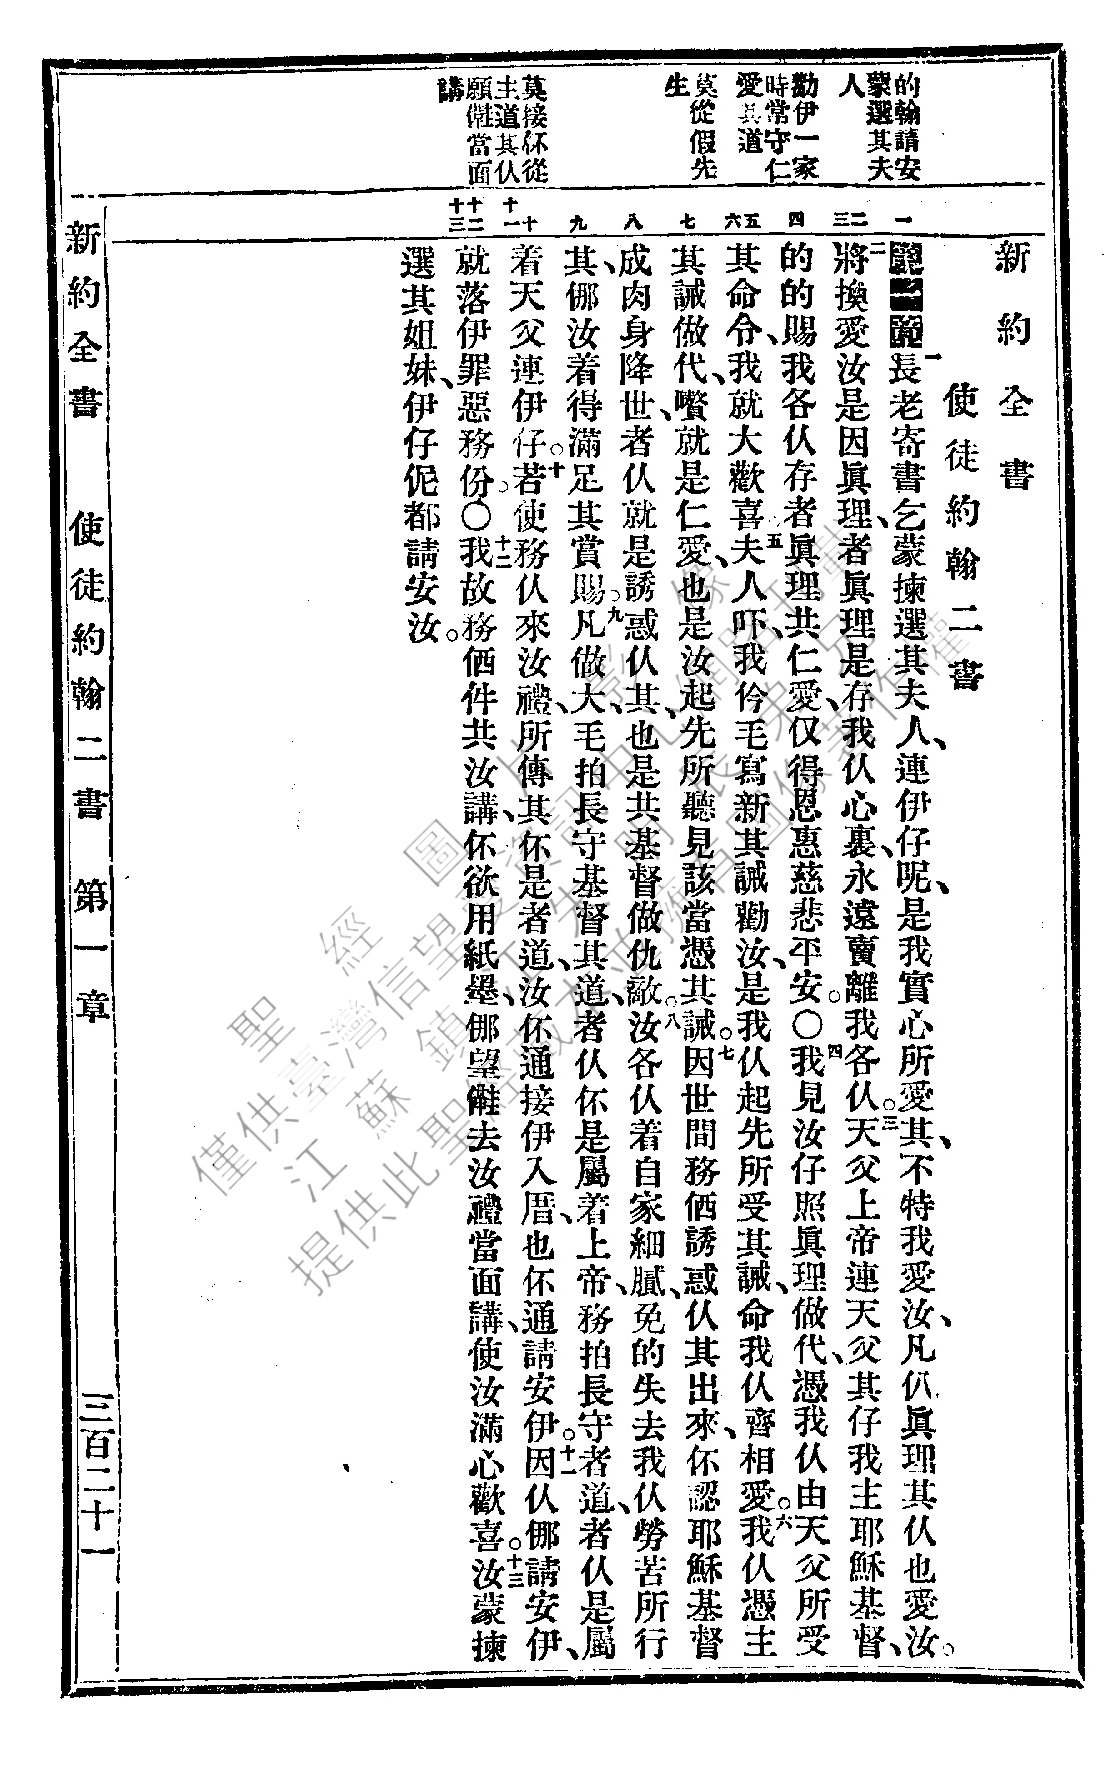 新約全書
使徒約翰二書
第一章長老寄書乞蒙揀選其夫人、連伊仔呢、是我實心所愛其、不特我愛汝、凡仈眞理其仈也愛汝。
二將換愛汝是因眞理、者眞理是存我仈心裏、永遠賣離我各仈。三天父上帝連天父其仔我主耶穌基督、
的的賜我各仈存者眞理共仁愛、仅得恩惠慈悲平安。〇四我見汝仔照眞理做代、憑我仈由天父所受
其命令、我就大歡喜五夫人吓、我伶毛寫新其誡勸汝、是我仈起先所受其誡、命我仈齊相愛。六我仈憑主
其誡做代、嚽就是仁愛、也是汝起先所聽見該當憑其誡。七因世間務価誘惑仈其出來、伓認耶穌基督
成肉身降世、者仈就是誘惑仈其、也是共基督做仇敵。八汝各仈着自家細膩、免的失去我仈勞苦所行
其、挪汝着得滿足其賞賜。九凡做大、毛拍長守基督其道、者仈伓是屬着上帝、務拍長守者道、者仈是屬
着天父連伊仔。十若使務仈來汝禮、所傳其伓是者道、汝伓通接伊入厝、也伓通請安伊。十一因仈挪請安伊、
就落伊罪惡務份。〇十二我故務価件共汝講、伓欲用紙墨、挪望儺去汝禮當面講、使汝滿心歡喜。十三汝蒙揀
選其姐妹、伊仔伲都請安汝。
一
二
三
四
五
六
七
八
九
十
十一
十二
十三
的翰請安
蒙選其夫
人
勸伊一家
時常守仁
愛其道
莫從假先
生
莫接伓從
主道其仈
願儺當面
講
新約全書 使徒約翰二書 第一章 三百二十一
聖經圖片
僅供臺灣信望愛資訊中心網路
江蘇鎮江
提供此聖經版本並擁有圖像著作權